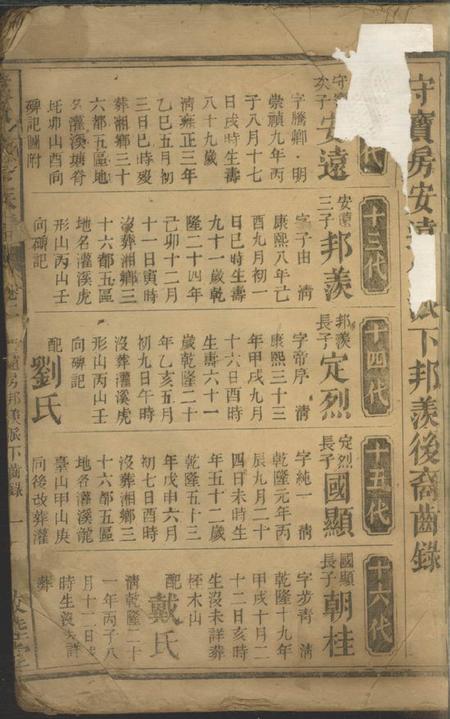 守寶房安遠
派下邦羨後裔齒錄
代
守
次子
安遠
字騰鄉明
崇禎九年丙
子八月十七
日戌時生壽
八十九歲
淸雍正三年
乙巳五月初
三日巳時歿
葬湘鄉三十
六都五區地
名灌溪塘脊
坵
山酉向
碑記圖附
十三代
安遠
三子
邦羨
字子由淸
康熙八年己
酉九月初一
日巳時生壽
九十一歲乾
隆二十四年
己卯十二月
十一日寅時
沒葬湘鄉三
十六都五區
地名灌溪虎
形山丙山壬
向碑記
十四代
邦羨
長子
定烈
字帝序淸
康熙三十三
年甲戌九月
十六日酉時
生壽六十一
歲乾隆二十
年乙亥五月
初九日午時
沒葬灌溪虎
形山丙山壬
向碑記
配
劉氏
十五代
定烈
長子
國顯
字純一淸
乾隆元年丙
辰九月二十
四日未時生
年五十二歲
乾隆五十三
年戊申六月
初七日酉時
沒葬湘鄉三
十六都五區
地名灌溪龍
臺山甲山庚
向後改葬灌
十六代
國顯
長子
朝桂
字步青淸
乾隆十九年
甲戌十月二
十二日亥時
生沒未詳葬
柸木山
配
戴氏
淸乾隆二十
一年丙子八
月十二日戌
時生沒失詳
葬
房邦羨派下齒錄
一